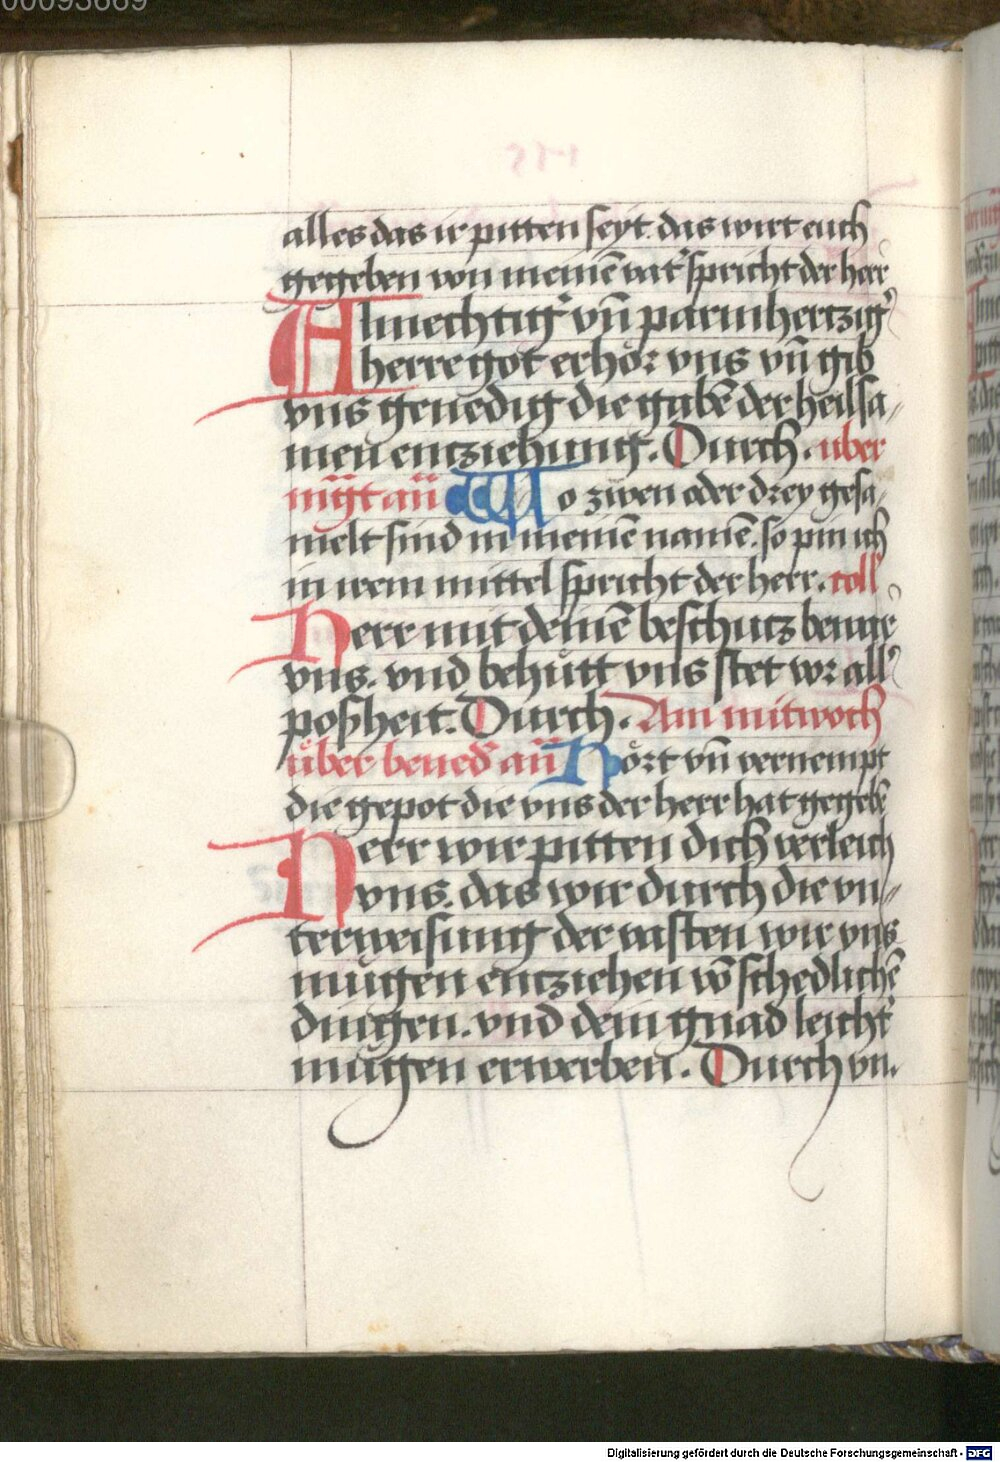 00093669
alles das ir pitten seyt. das wirt euch
gegeben von meinē vat' spricht der herr
Almechtig' vn̄ parmhertzig'
herre got erhör vns vn̄ gib
vns genedig die gabē der heilsa⸗
men entziehung. Durch. uber
mḡt an̄ Wo zwen oder drey gesa⸗
melt sind in meinē namē. so pin ich
in irem mittel spricht der herr. coll'
Herr mit deinē beschutz bewar
vns. vnd behütt vns stet vor all'
poßheit. Durch. Am mitwoch
über bened' an̄ Hört vn̄ vernempt
die gepot die vns der herr hat gegebē
Herr wir pitten dich verleich
vns. das wir durch die vn⸗
terweisung der vasten wir vns
mügen entziehen vō schedlichē
dingen. vnd dein gnad leicht'
mügen erwerben. Durch vn.
Digitalisierung gefördert durch die Deutsche Forschungsgemeinschaft - DFG